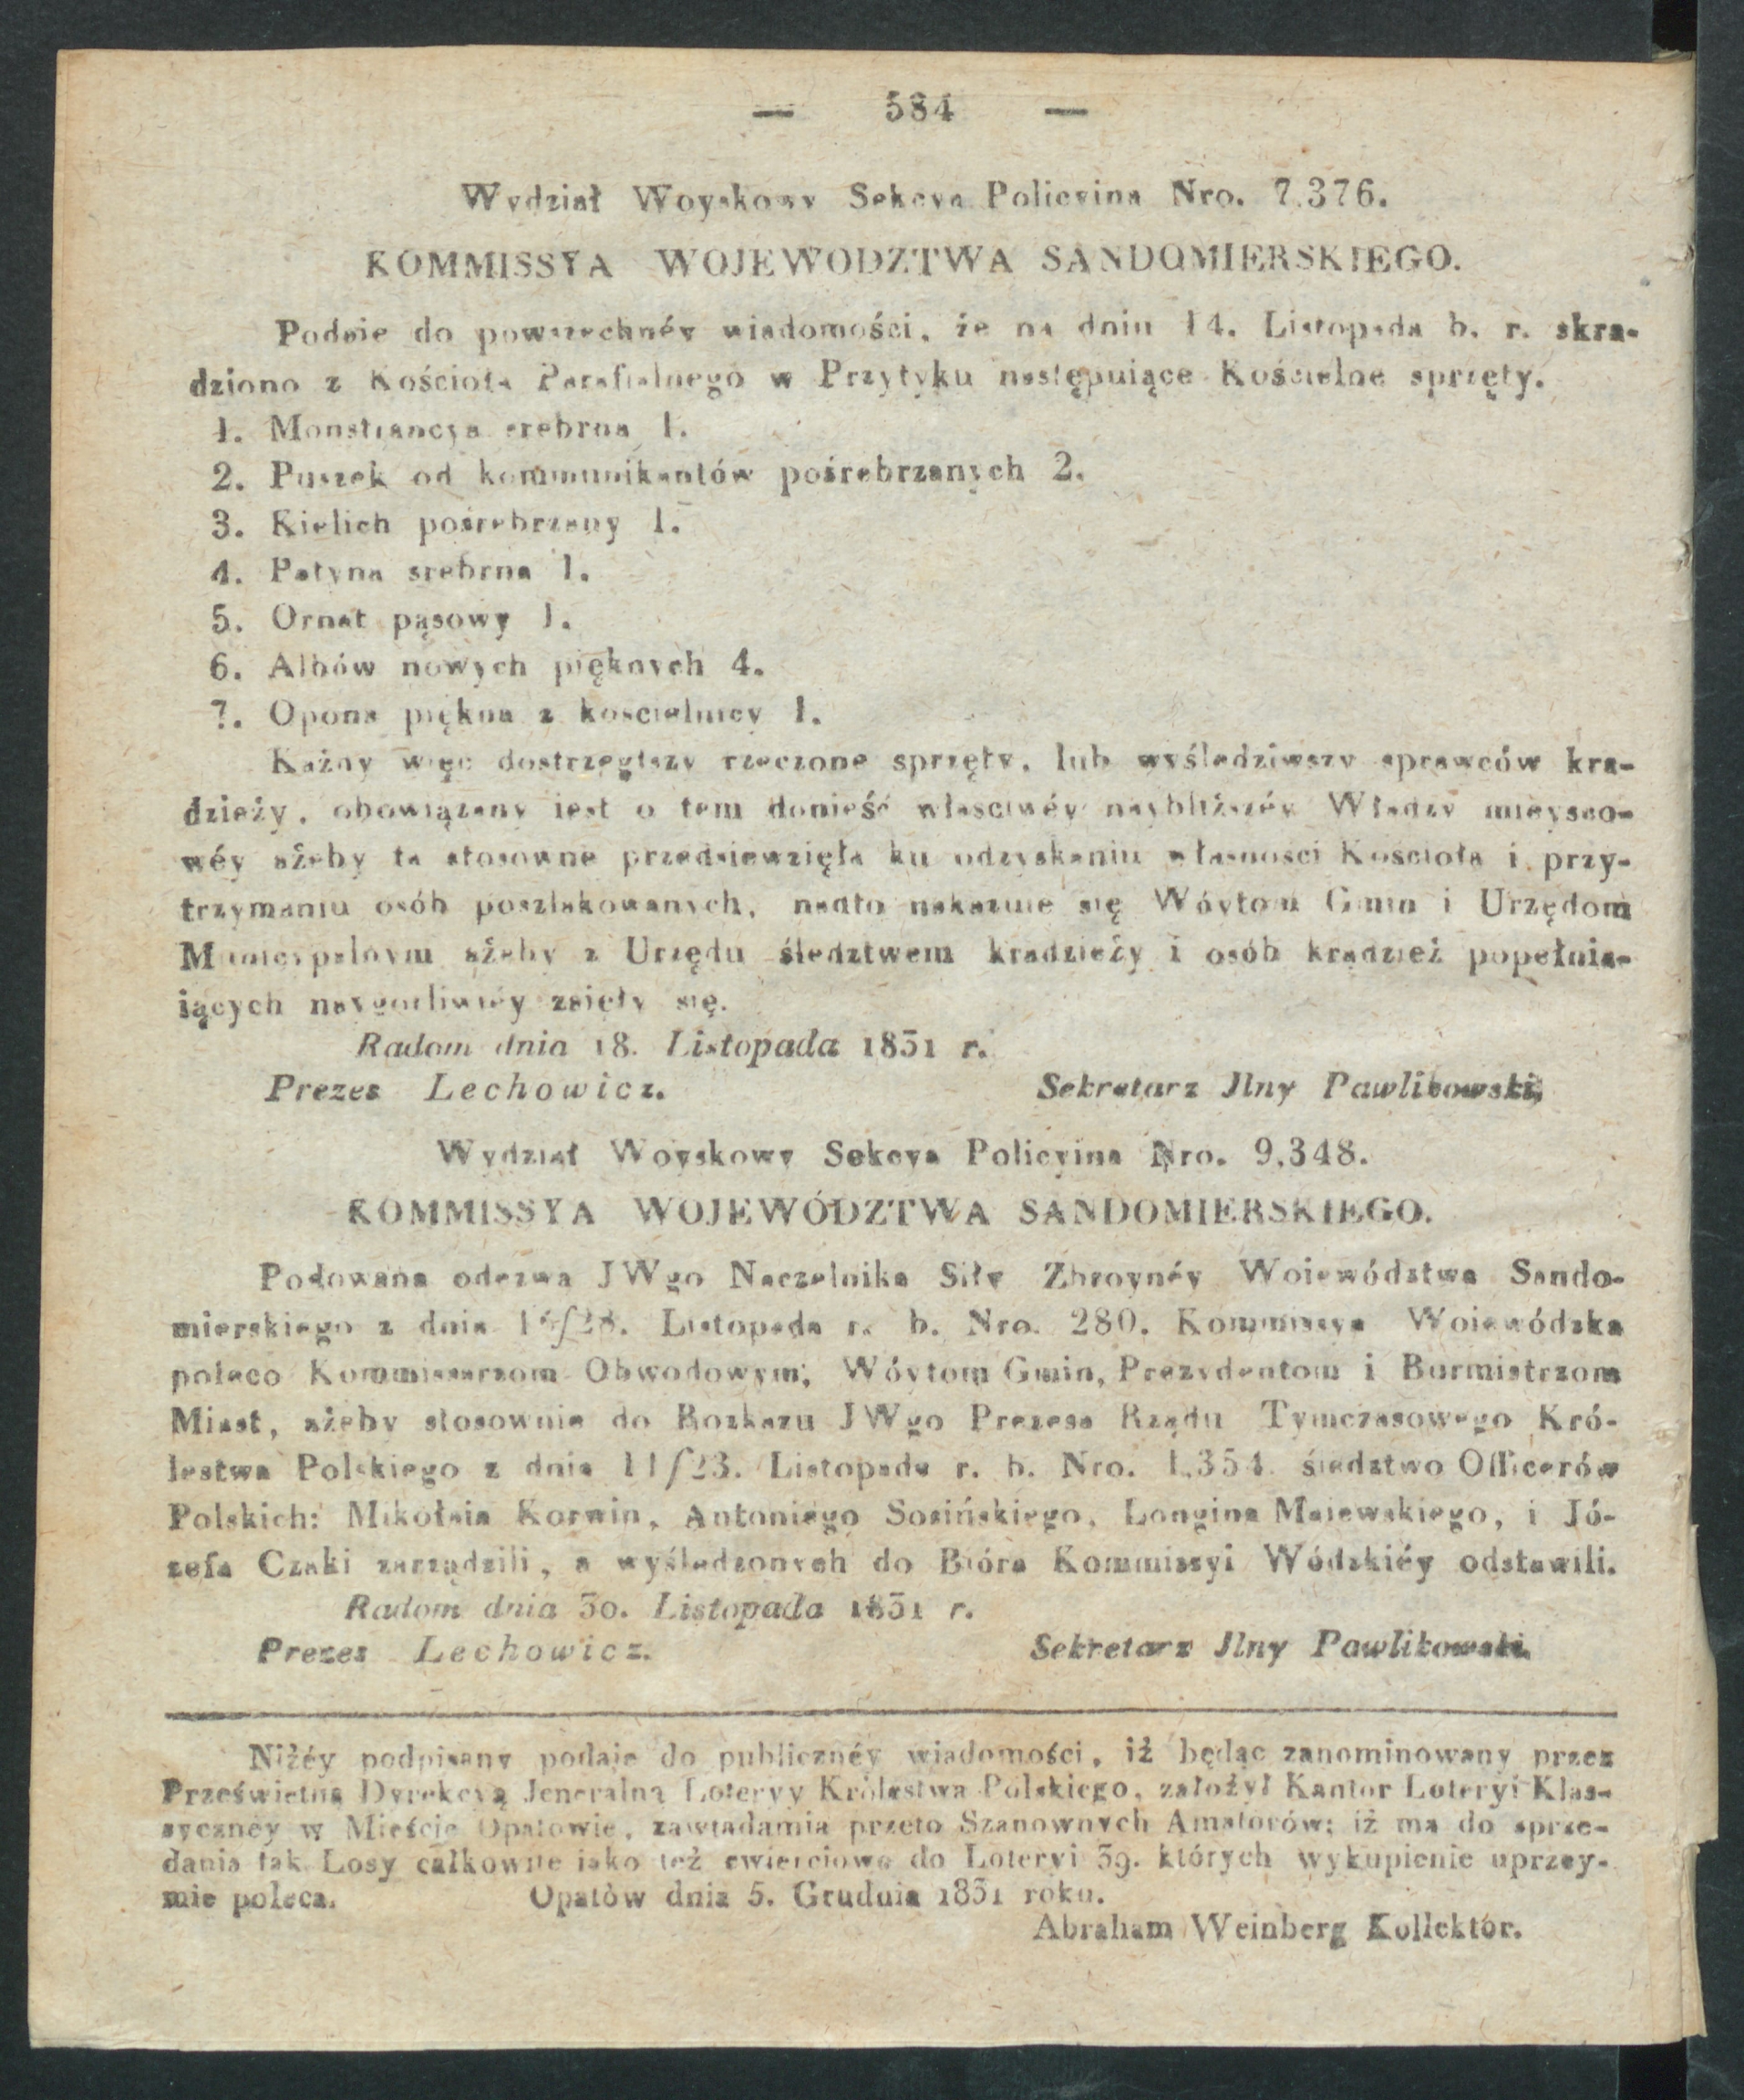 — 584 —
Wydział Woyskowy Sekcya Policyina Nro. 7,376.
KOMMISSYA WOJEWODZTWA SANDOMIERSKIEGO.
Podaie do powszechnéy wiadomości, że na dniu 14. Listopada b. r. skra-
dziono z Kościoła Parafialnego w Przytyku następuiące Kościelne sprzęty.
1. Monstrancya srebrna 1.
2. Puszek od kommunikantów pośrebrzanych 2.
3. Kielich pośrebrzany 1.
4. Patyna srebrna 1.
5. Ornat pąsowy 1.
6. Albów nowych pięknych 4.
7. Opona piękna z koscielnicy 1.
Każdy więc dostrzegłszy rzeczone sprzęty, lub wyśledziwszy sprawców kra-
dzieży, obowiązany iest o tem donieść właściwéy naybliższéy Władzy mieysco-
wéy ażeby ta stosowne przedsiewzięła ku odzyskaniu własności Kościoła i przy-
trzymaniu osób poszlakowanych, nadto nakazuie się Wóytom Gmin i Urzędom
Municypalnym ażeby z Urzędu śledztwem kradzieży i osób kradzież popełnia-
iących naygorliwiéy zaięły się.
Radom dnia 18. Listopada 1831 r.
Prezes Lechowicz. Sekretarz Jlny Pawlikowski,
Wydział Woyskowy Sekcya Policyina Nro. 9,348.
KOMMISSYA WOJEWÓDZTWA SANDOMIERSKIEGO.
Podowana odezwa JWgo Naczelnika Siły Zbroynéy Woiewództwa Sando-
mierskiego z dnia 16/28. Listopada r. b. Nro. 280. Kommissya Woiewódzka
poleco Kommissarzom Obwodowym, Wóytom Gmin, Prezydentom i Burmistrzom
Miast, ażeby stosownie do Rozkazu JWgo Prezesa Rządu Tymczasowego Kró-
lestwa Polskiego z dnia 11/23. Listopada r. b. Nro. 1,354 śledztwo Officerów
Polskich: Mikołaia Korwin, Antoniego Sosińskiego, Longina Maiewskiego, i Jó-
zefa Czaki zarządzili, a wyśledzonych do Bióra Kommissyi Wódzkiéy odstawili.
Radom dnia 30. Listopada 1831 r.
Prezes Lechowicz. Sekretarz Jlny Pawlikowski.
Niżéy podpisany podaje do publicznéy wiadomości, iż będąc zanominowany przez
Prześwietną Dyrekcyą Jeneralną Loteryy Królestwa Polskiego, założył Kantor Loteryi Klas-
syczney w Mieście Opatowie, zawiadamia przeto Szanownych Amatorów; iż ma do sprze-
dania tak Losy całkowite iako też cwierciowe do Loteryi 39. których wykupienie uprzey-
mie poleca. Opatów dnia 5. Grudnia 1831 roku.
Abraham Weinberg Kollektor.